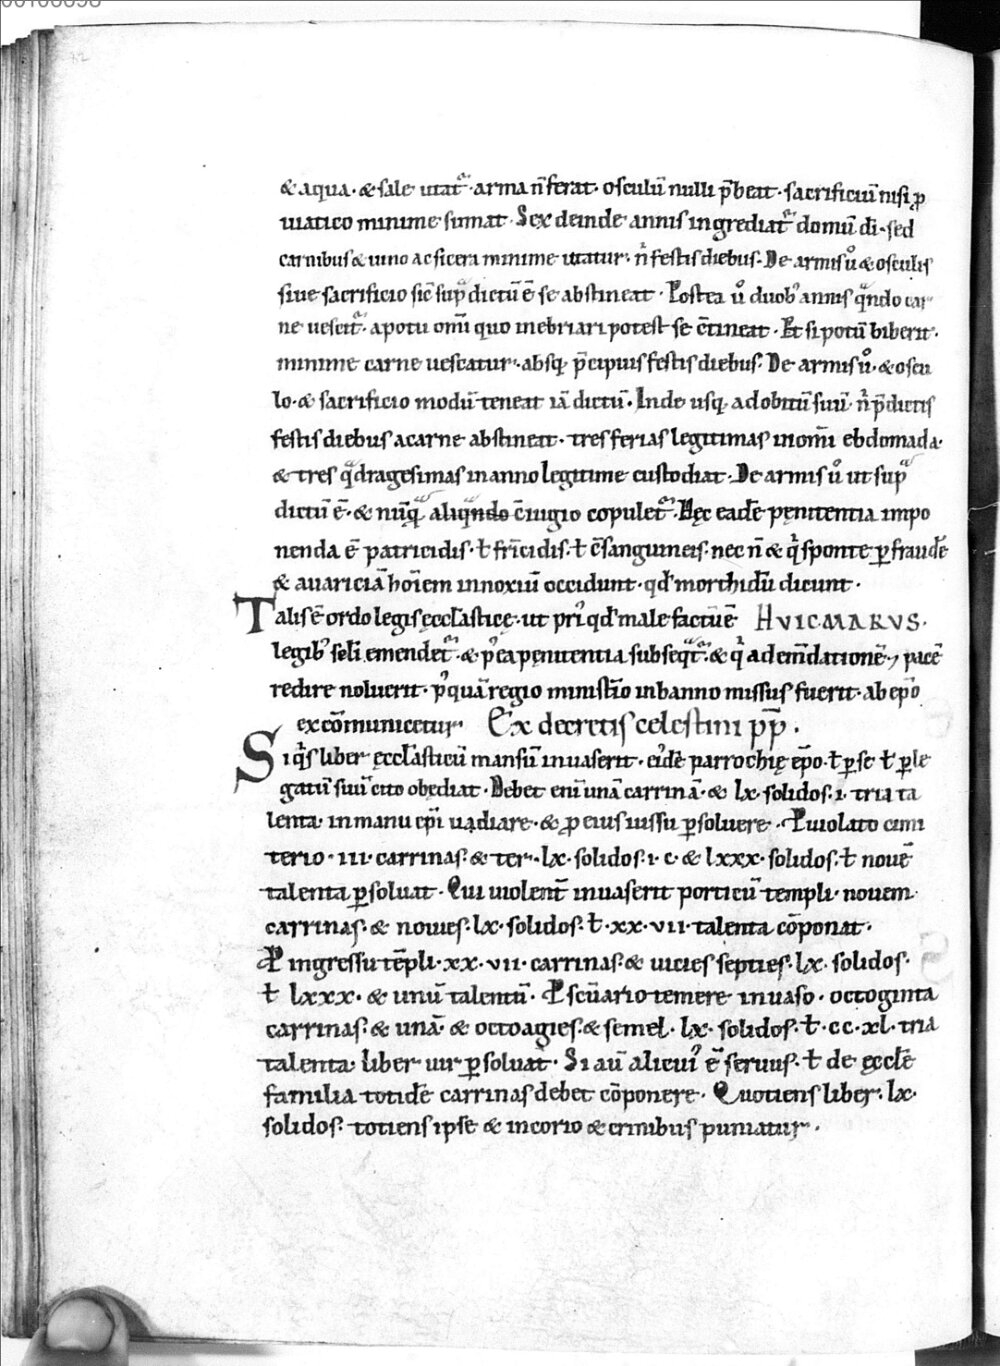 & aqua · & sale utat᷑ · arma n̄ ferat · osculū nulli p̄beat · sacrificiū nisi ꝓ
uiatico minime sumat · Sex deinde annis ingrediat᷑ domū dī · sed
carnibus & uino ac sicera minime utatur · n̄ festis diebus · De armis ů & osculis
siue sacrificio sic̄ sup̄ dictū ē se abstineat · Postea ů duob᾽ annis qᷓndo car
ne uescit᷑ · a potu om̄i quo inebriari potest se c̄tineat · Et si potū biberit ·
minime carne uescatur · absq; p̄cipuis festis diebus · De armis ů · & oscu
lo · & sacrificio modū teneat iā dictū · Inde usq; ad obitū suū n̄ p̄dictis
festis diebus a carne abstineat · tres ferias legitimas in om̄i ebdomada ·
& tres qᷓdragesimas in anno legitime custodiat · De armis ů ut supᷓ
dictū ē · & nūqᷓ aliqᷓndo c̄iugio copulet᷑ · Hęc eadē pęnitentia impo
nenda ē patricidis · ł fr̄icidis · ł c̄sanguineis · nec n̄ & qͥ sponte ꝑ fraudē
& auariciā hōīem innoxiū occidunt · qđ morthidū dicunt ·
Talis ē ordo legis ęccłasticę · ut pri᾽ qđ male factū ē HVICMARVS ·
legib᾽ seli emendet᷑ · & p᾽ ea pęnitentia subseqᷓt᷑ · & qͥ ad em̄dationē ⁊ pacē
redire noluerit · p᾽quā regio ministro in banno missus fuerit · ab ep̄o
excōmunicetur · Ex decretis celestini pp̄ ·
Si qͥs liber ęccłasticū mansū inuaserit · ei᾽dē parrochię ep̄o · ł ꝑ se ł ꝑ le
gatū suū cito obędiat · Debet eni unā carrinā · & lx · solidos · i · tria ta
lenta · in manu ep̄i uądiare · & ꝓ eius iussu ꝑsoluere · P uiolato cimi
terio · iii · carrinas · & ter · lx · solidos · i · c · & lxxx · solidos · ł nouē
talenta ꝑsoluat · Qui uiolent̄ inuaserit porticū templi · nouem
carrinas · & nouies · lx · solidos · ł · xx · vii · talenta cōponat ·
P ingressu tēpli · xx · vii · carrinas · & uicies septies · lx · solidos ·
ł lxxx · & unū talentū · P scūario temere inuaso · octoginta
carrinas · & unā · & octoagies · & semel · lx · solidos · ł · cc · xl · tria
talenta · liber uir ꝑsoluat · Si aū alicui᾽ ē seruus · ł de ęcclē
familia totidē carrinas debet cōponere · Quotiens liber · lx ·
solidos · totiens ipse & in corio & crinibus puniatur ·